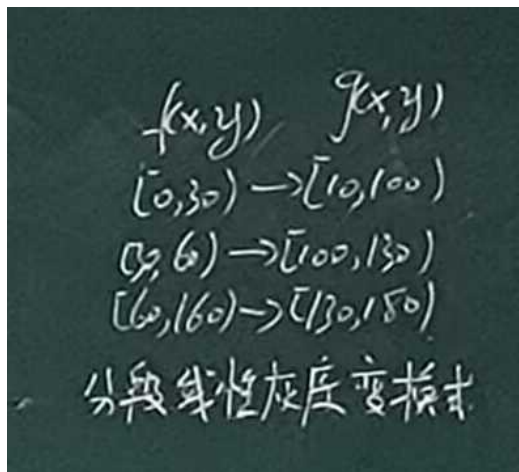 f(x,y) g(x,y)
[0,30)→[10,100)
[30,60)→[100,130)
[60,160)→[130,180)
分段线性灰度变换式